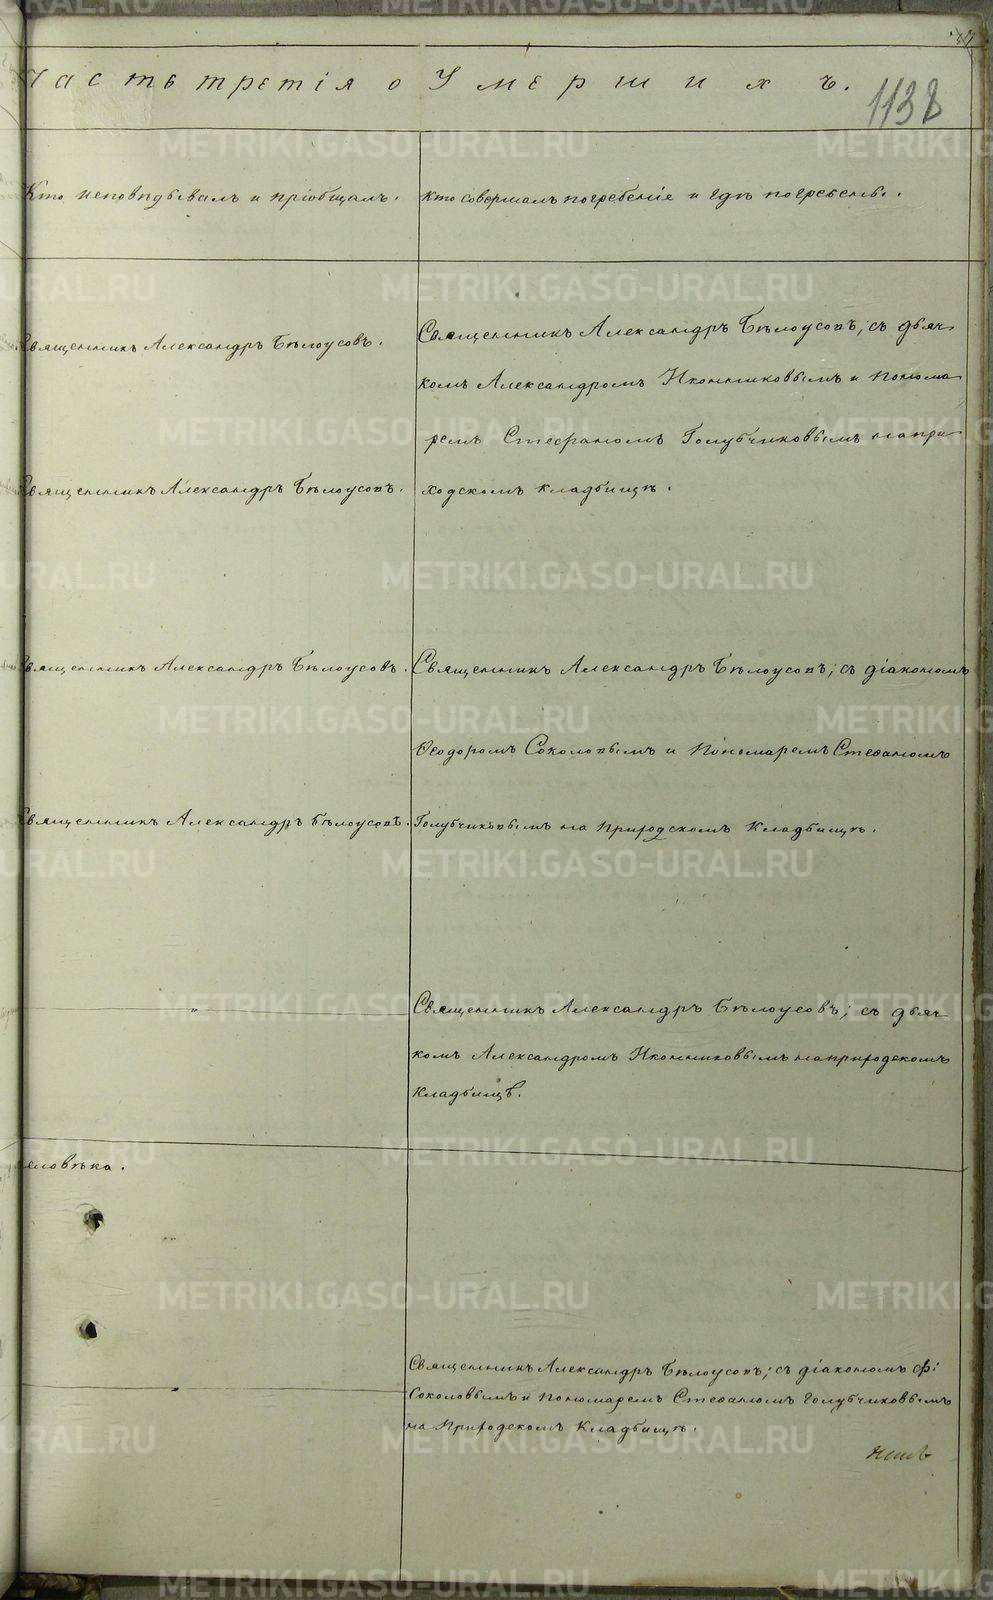 Часть третія о Умершихъ.
1138
Кто исповѣдывалъ и пріобщалъ.
Кто совершалъ погребеніе и гдѣ погребены.
Священникъ Александръ Бѣлоусовъ.
Священникъ Александръ Бѣлоусовъ; съ дьяч-
комъ Александромъ Иконниковымъ и Понома-
ремъ Стефаномъ Голубчиковымъ на при-
ходскомъ кладбищѣ.
Священникъ Александръ Бѣлоусовъ.
Священникъ Александръ Бѣлоусовъ.
Священникъ Александръ Бѣлоусовъ; съ діакономъ
Ѳеодоромъ Соколовымъ и Пономаремъ Стефаномъ
Голубчиковымъ на Приходскомъ Кладбищѣ.
Священникъ Александръ Бѣлоусовъ.
Священникъ Александръ Бѣлоусовъ; съ дьяч-
комъ Александромъ Иконниковымъ на приходскомъ
Кладбищѣ.
человѣка.
Священникъ Александръ Бѣлоусовъ; съ діакономъ Ф:
Соколовымъ и Пономаремъ Стефаномъ Голубчиковымъ
на Приходскомъ Кладбищѣ.
METRIKI.GASO-URAL.RU